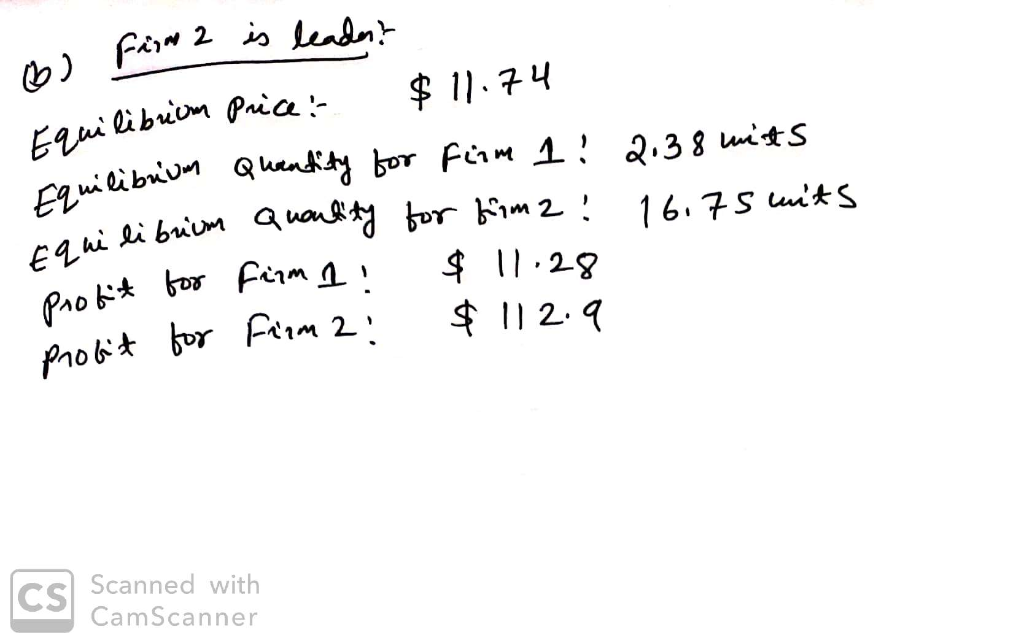 (b) Firm 2 is leader:-
Equilibrium Price:- $ 11.74
Equilibrium Quantity for Firm 1: 2.38 units
Equilibrium Quantity for firm 2: 16.75 units
Profit for Firm 1: $ 11.28
Profit for Firm 2: $ 112.9
CS Scanned with
CamScanner